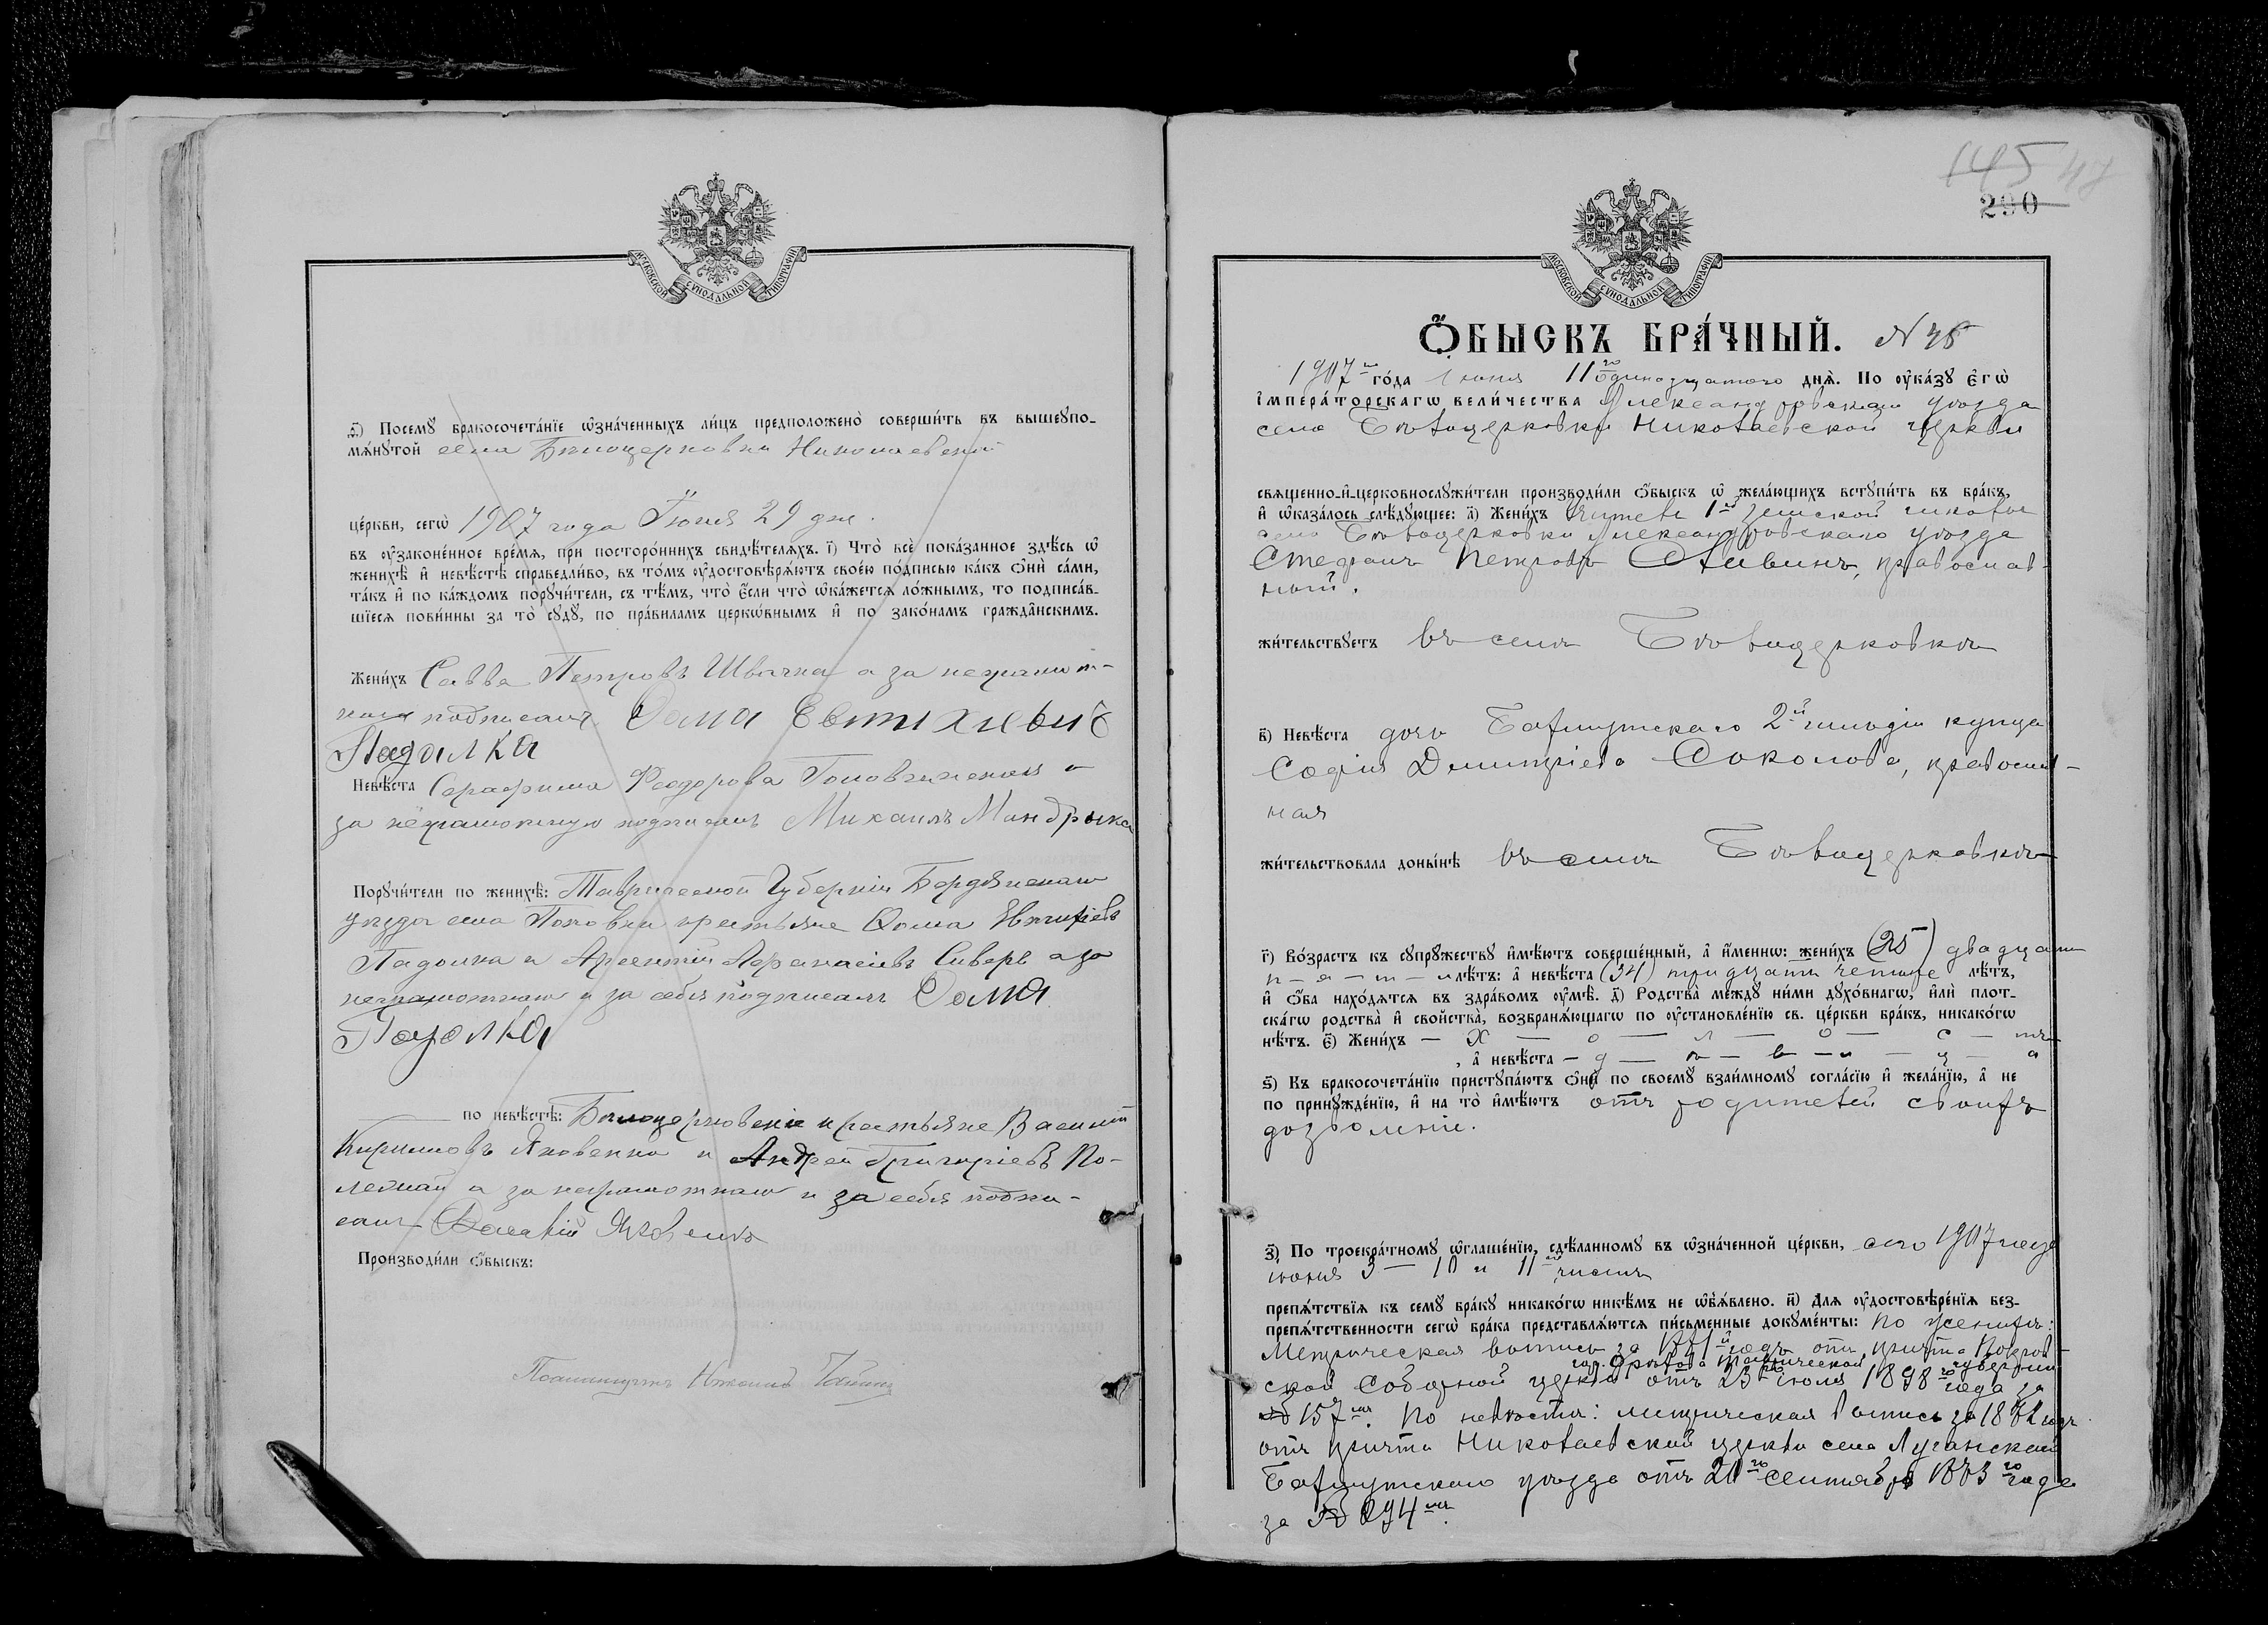 МОСКОВСКОЙ СѴНОДАЛЬНОЙ ТИПОГРАФІИ
Посемꙋ бракосочета́нїе ѡ҆зна́ченныхъ ли́цъ предположено̀ соверши́ть въ вышеꙋпо-
мѧ́нꙋтой села Бѣлоцерковки Николаевской
це́ркви, сегѡ̀ 1907 года Іюня 29 дня.
въ оу҆законе́нное вре́мѧ, при посторо́ннихъ свидѣ́телѧхъ. і҃) Что̀ всѐ пока́занное здѣ́сь ѡ҆
женихѣ̀ и҆ невѣ́стѣ справедли́во, въ то́мъ оу҆достовѣрѧ́ютъ свое́ю по́дписью ка́къ ѻ҆нѝ са́ми,
та́къ и҆ по ка́ждомъ порꙋчи́тели, съ тѣ́мъ, что̀ є҆́сли что̀ ѡ҆ка́жетсѧ ло́жнымъ, то подписа́в-
шїесѧ пови́нны за то̀ сꙋдꙋ̀, по пра́виламъ церкѡ́внымъ и҆ по зако́намъ гражда̑нскимъ.
Жени́хъ Савва Петровъ Швачка а за неграмот-
наго подписалъ Ѳома Евтихиевъ
Падалка
Невѣ́ста Серафима Ѳеодорова а
за неграмотную подписалъ Михаилъ Мандрыка
Порꙋчи́тели по женихѣ̀: Таврической Губерніи Бердянскаго
уѣзда села Поповки крестьяне Ѳома Евтихіевъ
Падалка и Арсентій Аѳанасіевъ Сиверъ а за
неграмотнаго и за себя подписалъ Ѳома
Падалка
по невѣ́стѣ: Бѣлоцерковскіе крестьяне Василій
Кирилловъ Яковенко и Андрей Григоріевъ По-
а за неграмотнаго и за себя подпи-
салъ Василій Яковенко
Производи́ли ѻ҆́быскъ:
145 47
290
МОСКОВСКОЙ СѴНОДАЛЬНОЙ ТИПОГРАФІИ
Ѻ҆́БЫСКЪ БРА́ЧНЫЙ. N 48
1907 го́да Іюня 11го одинадцатаго днѧ̀. По оу҆ка́зꙋ є҆гѡ̀
і҆мпера́торскагѡ вели́чества Александровскаго уѣзда
села Бѣлоцерковки Николаевской церкви
свѧще́нно-и҆-церковнослꙋжи́тели производи́ли ѻ҆́быскъ ѡ҆ жела́ющихъ встꙋпи́ть въ бра́къ,
и҆ ѡ҆каза́лось слѣ́дꙋющее: а҃) Жени́хъ Учитель 1й земской школы
села Бѣлоцерковки Александровскаго уѣзда
Стефанъ Петровъ православ-
ный.
жи́тельствꙋетъ въ селѣ Бѣлоцерковкѣ
в҃) Невѣ́ста дочь Бахмутскаго 2й гильдіи купца
Софія Димитріева Соколова, православ-
ная
жи́тельствовала доны́нѣ въ селѣ Бѣлоцерковкѣ
г҃) Во́зрастъ къ сꙋпрꙋ́жествꙋ и҆мѣ́ютъ соверше́нный, а҆ и҆́меннѡ: жени́хъ (25) двадцати
п — я — т — и лѣ́тъ: а҆ невѣ́ста (34) тридцати четыре лѣ́тъ,
и҆ ѻ҆́ба нахо́дѧтсѧ въ здра́вомъ оу҆мѣ̀. д҃) Родства̀ ме́ждꙋ ни́ми дꙋхо́внагѡ, и҆лѝ плот-
ска́гѡ родства̀ и҆ сво́йства, возбранѧ́ющагѡ по оу҆становле́нїю св. це́ркви бра́къ, никако́гѡ
нѣ́тъ. є҃) Жени́хъ — Х — о — л — о — с — тъ
, а҆ невѣ́ста — д — ѣ — в — и — ц — а
ѕ҃) Къ бракосочета́нїю пристꙋпа́ютъ ѻ҆нѝ по своемꙋ̀ взаи́мномꙋ согла́сїю и҆ жела́нїю, а҆ не
по принꙋжде́нїю, и҆ на то̀ и҆мѣ́ютъ отъ родителей своихъ
дозволеніе.
з҃) По троекра́тномꙋ ѡ҆глаше́нїю, сдѣ́ланномꙋ въ ѡ҆зна́ченной це́ркви, сего 1907 года
Іюня 3 — 10 и 11го числъ
препѧ́тствїѧ къ семꙋ̀ бра́кꙋ никако́гѡ никѣ́мъ не ѡ҆б̾ѧ́влено. и҃) Длѧ оу҆достовѣре́нїѧ без-
препѧ́тственности сегѡ̀ бра́ка представлѧ́ютсѧ пи́сьменные докꙋме́нты: по женихѣ:
Метрическая выпись за годъ отъ причта Покров-
гор. Орѣхова Таврической губерніи
ской Соборной церкви отъ 23го Іюля 1898го года за
№ 157мъ. По невѣстѣ: метрическая выпись за годъ
отъ причта Николаевской церкви села Луганскаго
Бахмутскаго уѣзда отъ сентября года
за № 294мъ.